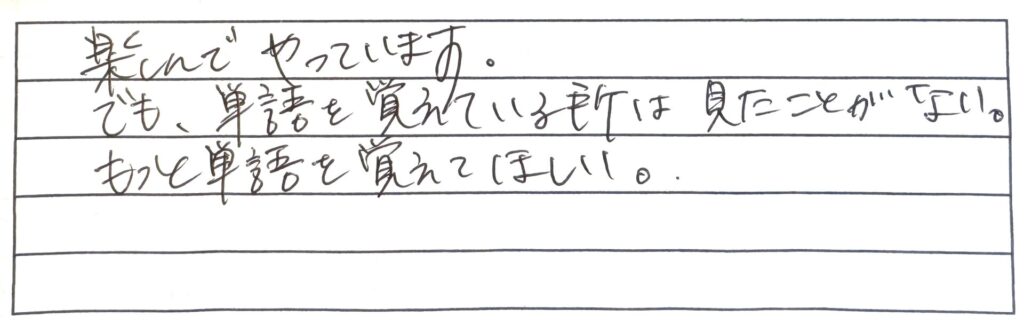 楽しんで やっています。
でも、単語を覚えている所は 見たことがない。
もっと単語を覚えてほしい。